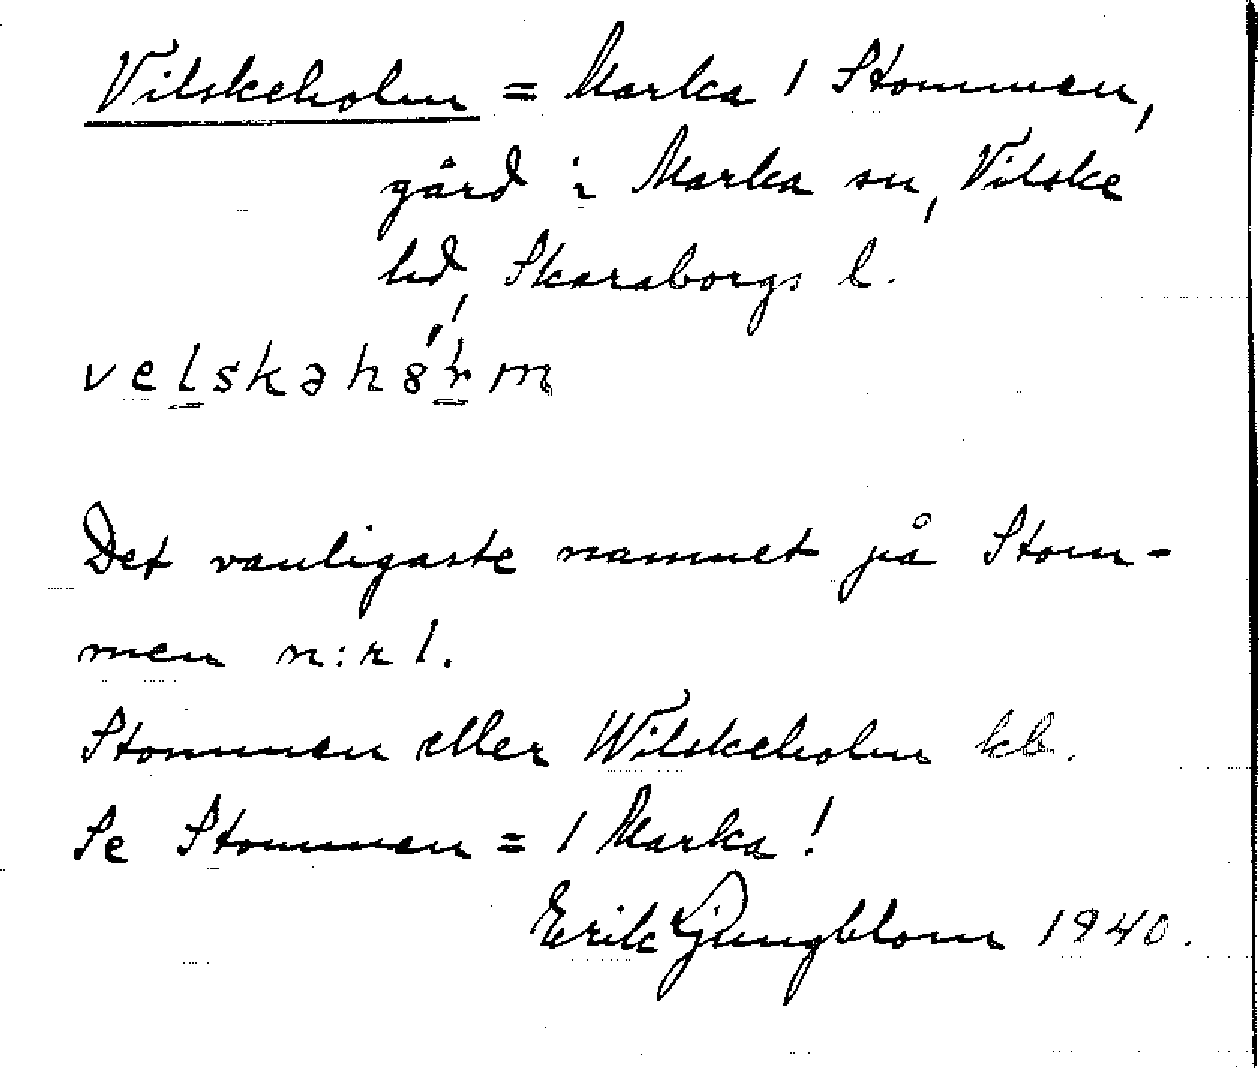 Vilskeholm = Marka 1 Stommen,
gård i Marka sn, Vilske
hd, Skaraborgs l.
velskəh8̀ɽm
Det vanligaste namnet på Stom-
men n:r 1.
Stommen eller Wilskeholm kb.
Se Stommen = 1 Marka!
Erik Ljungblom 1940.